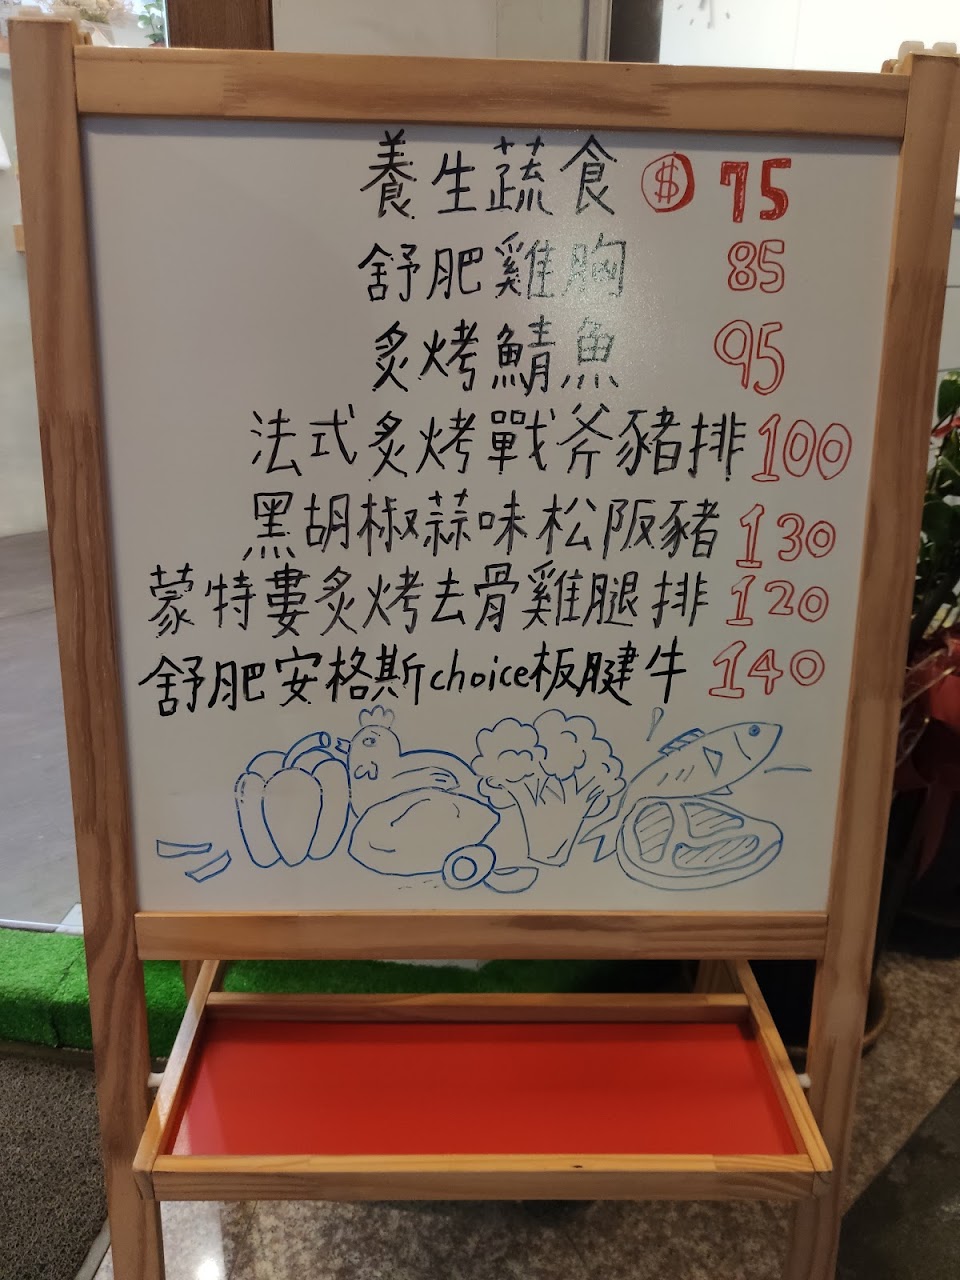 養生蔬食 $ 75
舒肥雞胸 85
炙烤鯖魚 95
法式炙烤戰斧豬排 100
黑胡椒蒜味松阪豬 130
蒙特婁炙烤去骨雞腿排 120
舒肥安格斯choice板腱牛 140